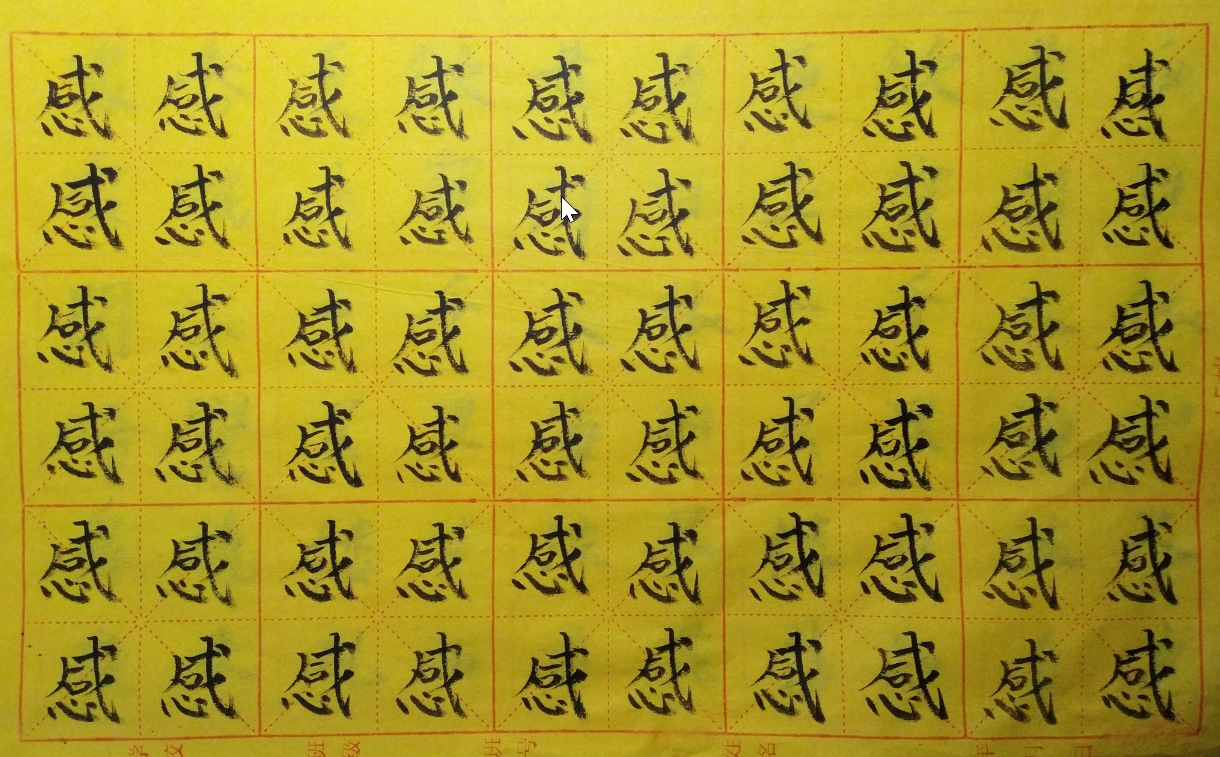 感感感感感感感感感感
感感感感感感感感感感
感感感感感感感感感感
感感感感感感感感感感
感感感感感感感感感感
感感感感感感感感感感
学校 班级 班号 姓名 年 月 日